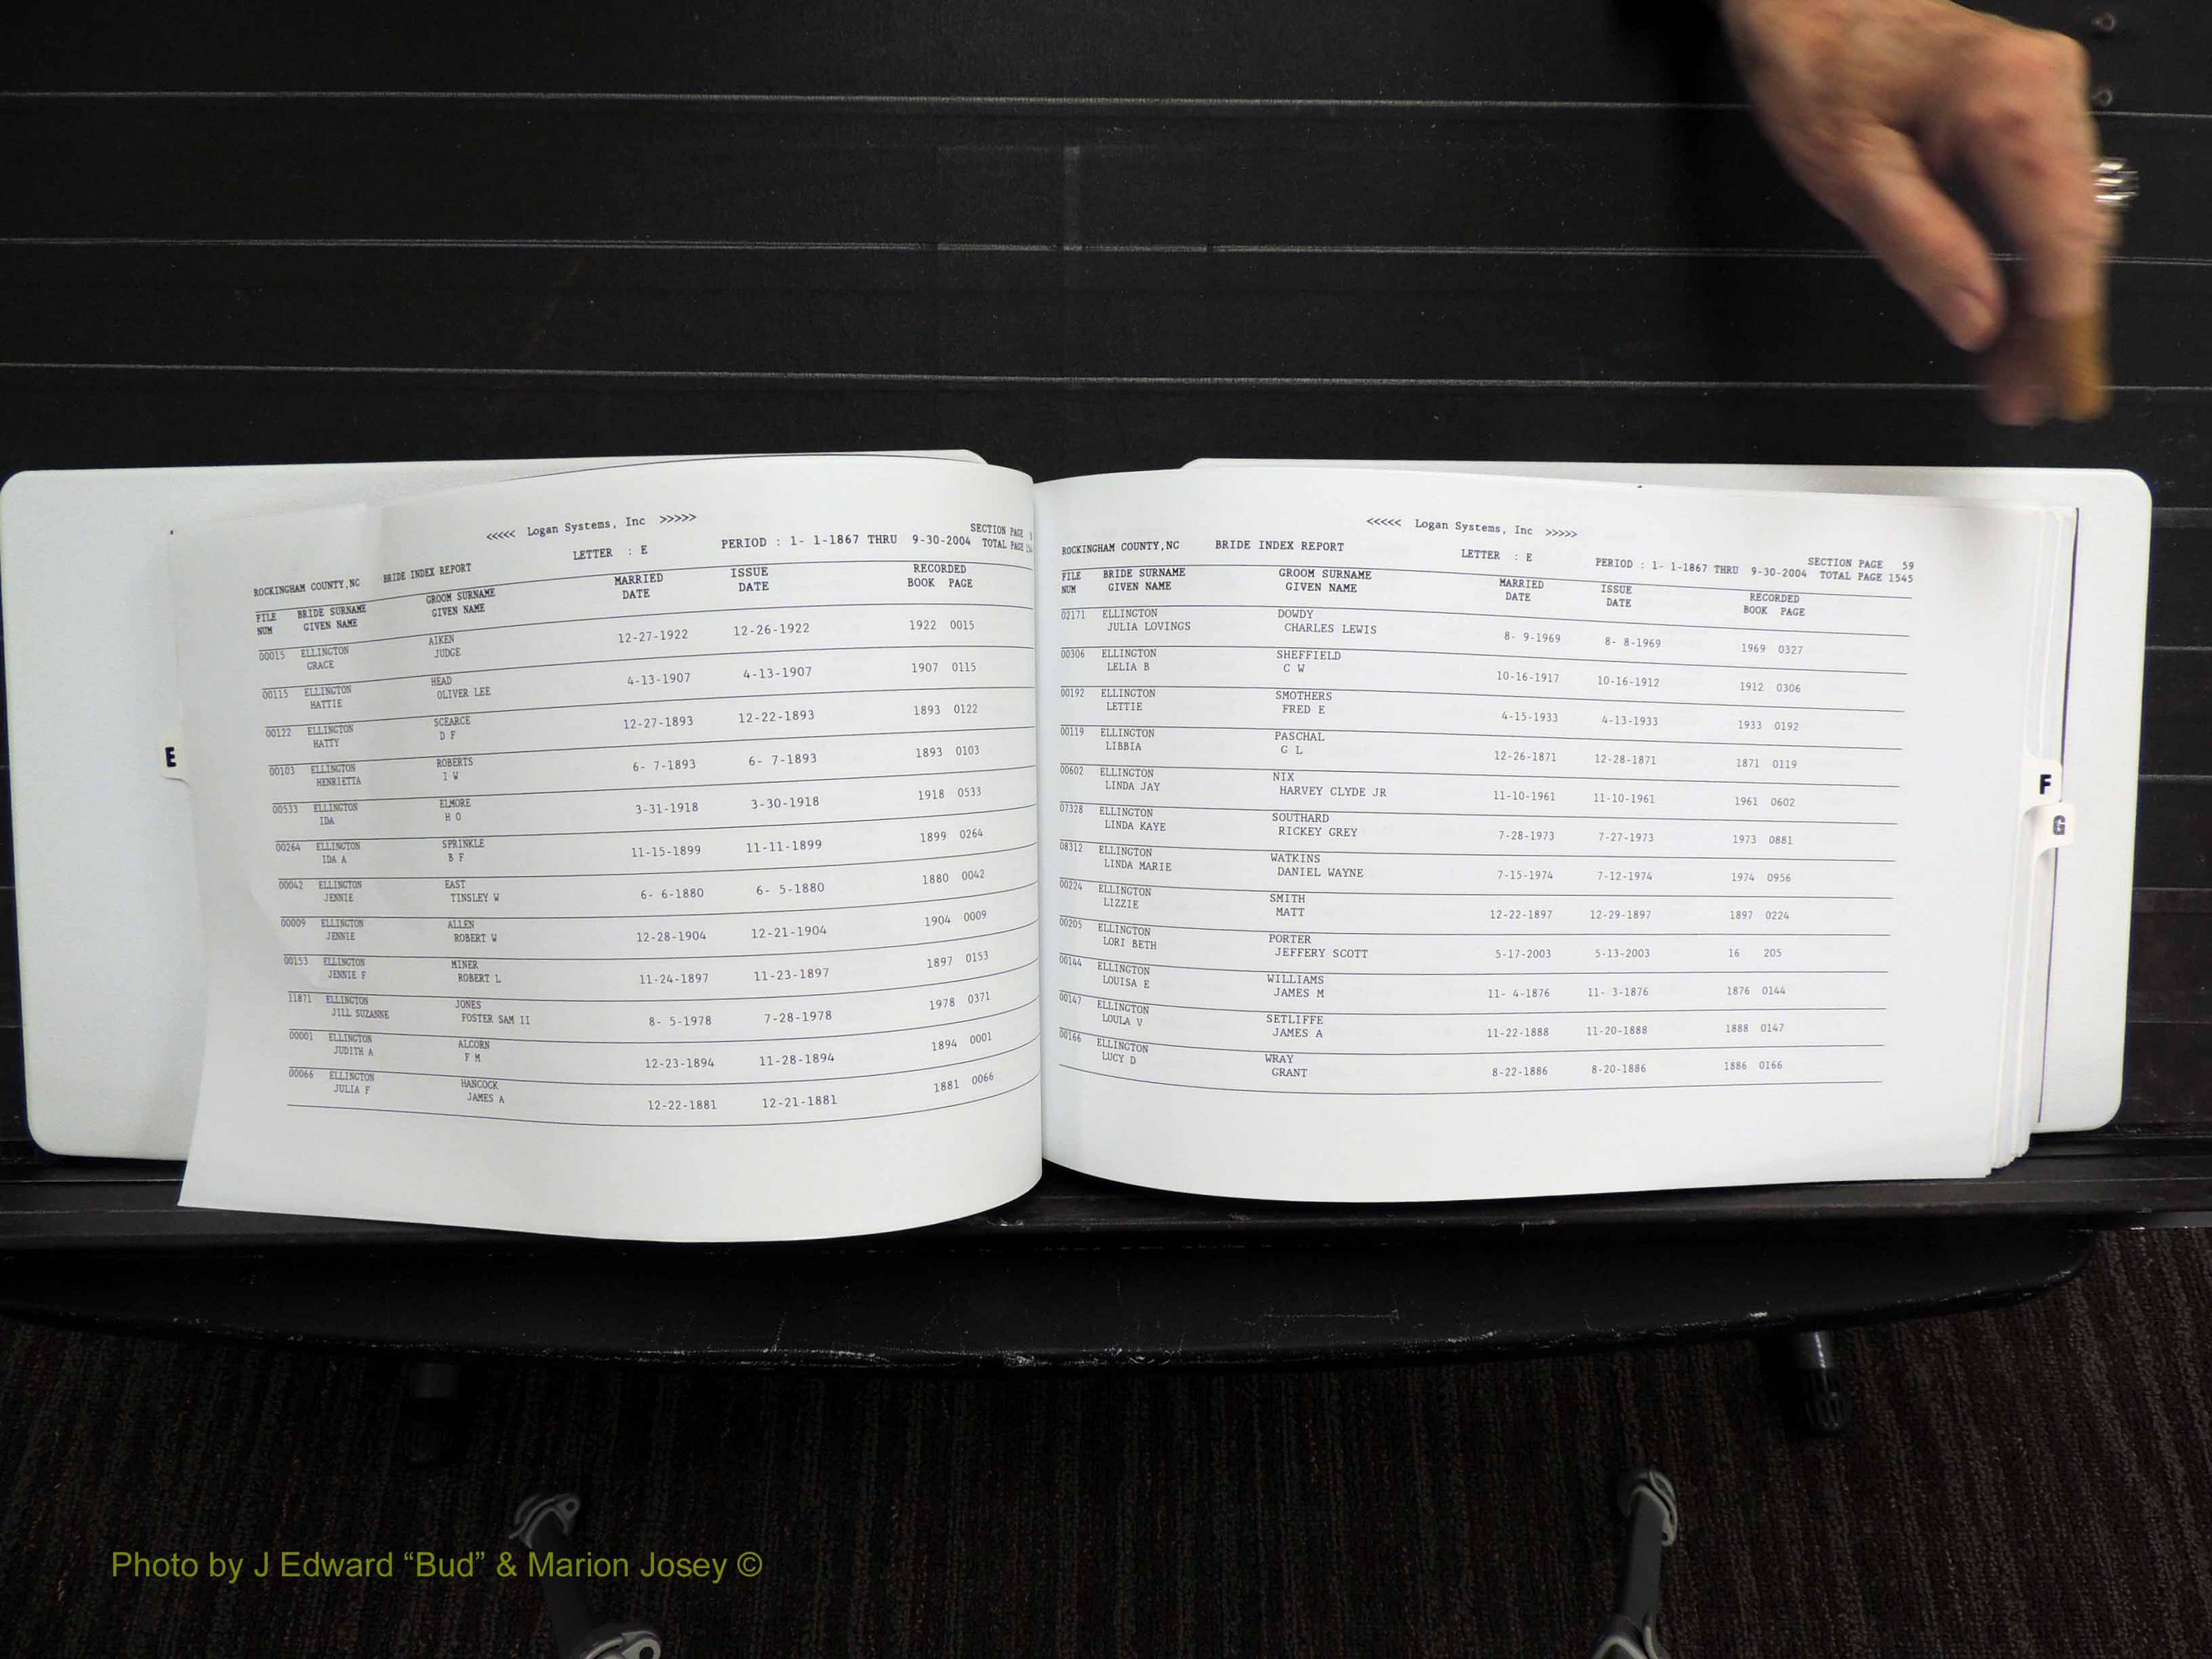 <<<<< Logan Systems, Inc >>>>>
SECTION PAGE
ROCKINGHAM COUNTY,NC BRIDE INDEX REPORT LETTER : E PERIOD : 1- 1-1867 THRU 9-30-2004 TOTAL PAGE
FILE BRIDE SURNAME GROOM SURNAME MARRIED ISSUE RECORDED
NUM GIVEN NAME GIVEN NAME DATE DATE BOOK PAGE
00015 ELLINGTON AIKEN 12-27-1922 12-26-1922 1922 0015
GRACE JUDGE
00115 ELLINGTON HEAD 4-13-1907 4-13-1907 1907 0115
HATTIE OLIVER LEE
00122 ELLINGTON SCEARCE 12-27-1893 12-22-1893 1893 0122
HATTY D F
00103 ELLINGTON ROBERTS 6- 7-1893 6- 7-1893 1893 0103
HENRIETTA I W
00533 ELLINGTON ELMORE 3-31-1918 3-30-1918 1918 0533
IDA H O
00264 ELLINGTON SPRINKLE 11-15-1899 11-11-1899 1899 0264
IDA A B F
00042 ELLINGTON EAST 6- 6-1880 6- 5-1880 1880 0042
JENNIE TINSLEY W
00009 ELLINGTON ALLEN 12-28-1904 12-21-1904 1904 0009
JENNIE ROBERT W
00153 ELLINGTON MINER 11-24-1897 11-23-1897 1897 0153
JENNIE F ROBERT L
11871 ELLINGTON JONES 8- 5-1978 7-28-1978 1978 0371
JILL SUZANNE FOSTER SAM II
00001 ELLINGTON ALCORN 12-23-1894 11-28-1894 1894 0001
JUDITH A F M
00066 ELLINGTON HANCOCK 12-22-1881 12-21-1881 1881 0066
JULIA F JAMES A
E
<<<<< Logan Systems, Inc >>>>>
SECTION PAGE 59
ROCKINGHAM COUNTY,NC BRIDE INDEX REPORT LETTER : E PERIOD : 1- 1-1867 THRU 9-30-2004 TOTAL PAGE 1545
FILE BRIDE SURNAME GROOM SURNAME MARRIED ISSUE RECORDED
NUM GIVEN NAME GIVEN NAME DATE DATE BOOK PAGE
02171 ELLINGTON DOWDY 8- 9-1969 8- 8-1969 1969 0327
JULIA LOVINGS CHARLES LEWIS
00306 ELLINGTON SHEFFIELD 10-16-1917 10-16-1912 1912 0306
LELIA B C W
00192 ELLINGTON SMOTHERS 4-15-1933 4-13-1933 1933 0192
LETTIE FRED E
00119 ELLINGTON PASCHAL 12-26-1871 12-28-1871 1871 0119
LIBBIA G L
00602 ELLINGTON NIX 11-10-1961 11-10-1961 1961 0602
LINDA JAY HARVEY CLYDE JR
07328 ELLINGTON SOUTHARD 7-28-1973 7-27-1973 1973 0881
LINDA KAYE RICKEY GREY
08312 ELLINGTON WATKINS 7-15-1974 7-12-1974 1974 0956
LINDA MARIE DANIEL WAYNE
00224 ELLINGTON SMITH 12-22-1897 12-29-1897 1897 0224
LIZZIE MATT
00205 ELLINGTON PORTER 5-17-2003 5-13-2003 16 205
LORI BETH JEFFERY SCOTT
00144 ELLINGTON WILLIAMS 11- 4-1876 11- 3-1876 1876 0144
LOUISA E JAMES M
00147 ELLINGTON SETLIFFE 11-22-1888 11-20-1888 1888 0147
LOULA V JAMES A
00166 ELLINGTON WRAY 8-22-1886 8-20-1886 1886 0166
LUCY D GRANT
F
G
Photo by J Edward “Bud” & Marion Josey ©